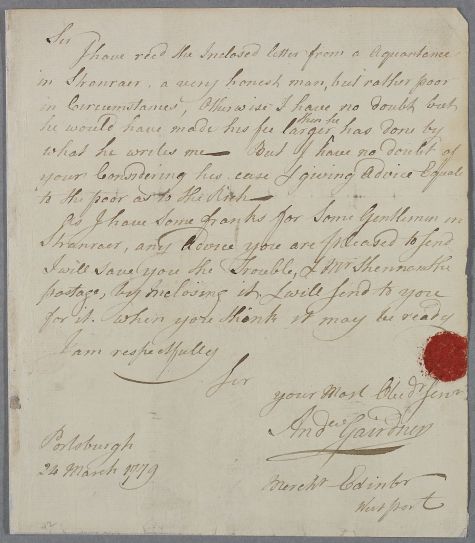 Sir
I have recd the Inclosed letter from a Aquantance
in Stranraer, a very honest man, but rather poor
in Circumstances, Otherwise I have no doubt but
he would have made his fee larger than he has done by
what he writes me — But I have no doubt of
your Considering his case & giving Advice Equale
to the poor as to the Rich —
As I have some franks for some Gentlemen in
Stranraer, any Advice you are pleased to send
I will save you the Trouble, & Mr Shennan the
postage, by Inclosing it. I will send to you
for it. when you think it may be ready
I am respectfully
Sir
your Most Obedt Servt
Andw Gairdner
Portsburgh
24 March 1779
Mercht Edinbr
West port